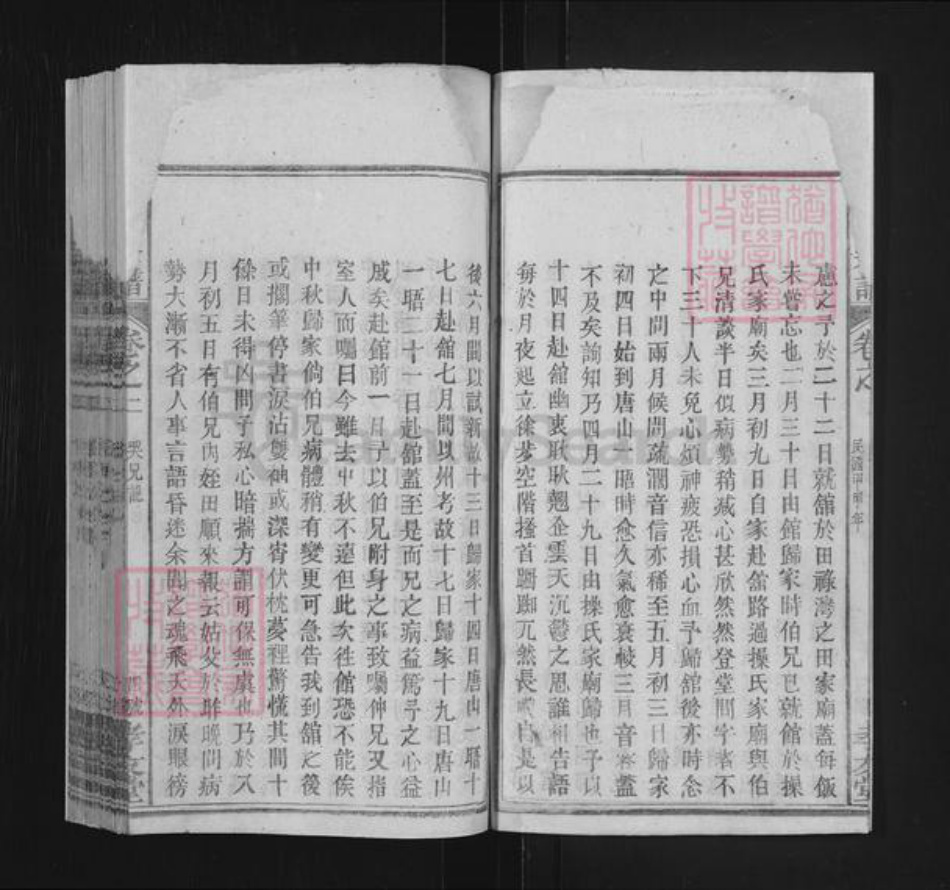 慮之予於二十二日就舘於田祿灣之田家廟蓋每飯
未嘗忘也二月三十日由館歸家時伯兄已就館於操
氏家廟矣三月初九日自家赴舘路過操氏家廟與伯
兄清談半日似病勢稍減心甚欣然然登堂問字者不
下三十人未免心煩神疲恐損心血予歸舘後亦時念
之中間兩月候問疏濶音信亦稀至五月初三日歸家
初四日始到唐山一晤時愈久氣愈衰較三月音容蓋
不及矣詢知乃四月二十九日由操氏家廟歸也予以
十四日赴舘幽衷耿耿翹企雲天沉鬱之思誰相告語
每於月夜起立徐步空階搔首踟蹰兀然長嘆自是以
後六月間以試新故十三日歸家十四日唐山一晤十
七日赴舘七月間以州考故十七日歸家十九日唐山
一晤二十一日赴舘蓋至是而兄之病益篤予之心益
戚矣赴館前一日予以伯兄附身之事致囑仲兄又指
室人而囑曰今雖去中秋不遠但此次往館恐不能俟
中秋歸家倘伯兄病體稍有變更可急告我到舘之後
或擱筆停書淚沾雙袖或深宵伏枕夢裡驚慌其間十
餘日未得凶問予私心暗揣方謂可保無虞也乃於八
月初五日有伯兄内姪田順來報云姑父於昨晚間病
勢大漸不省人事言語昏迷余聞之魂飛天外淚眼徬
卷之二
哭兄記
孝友堂